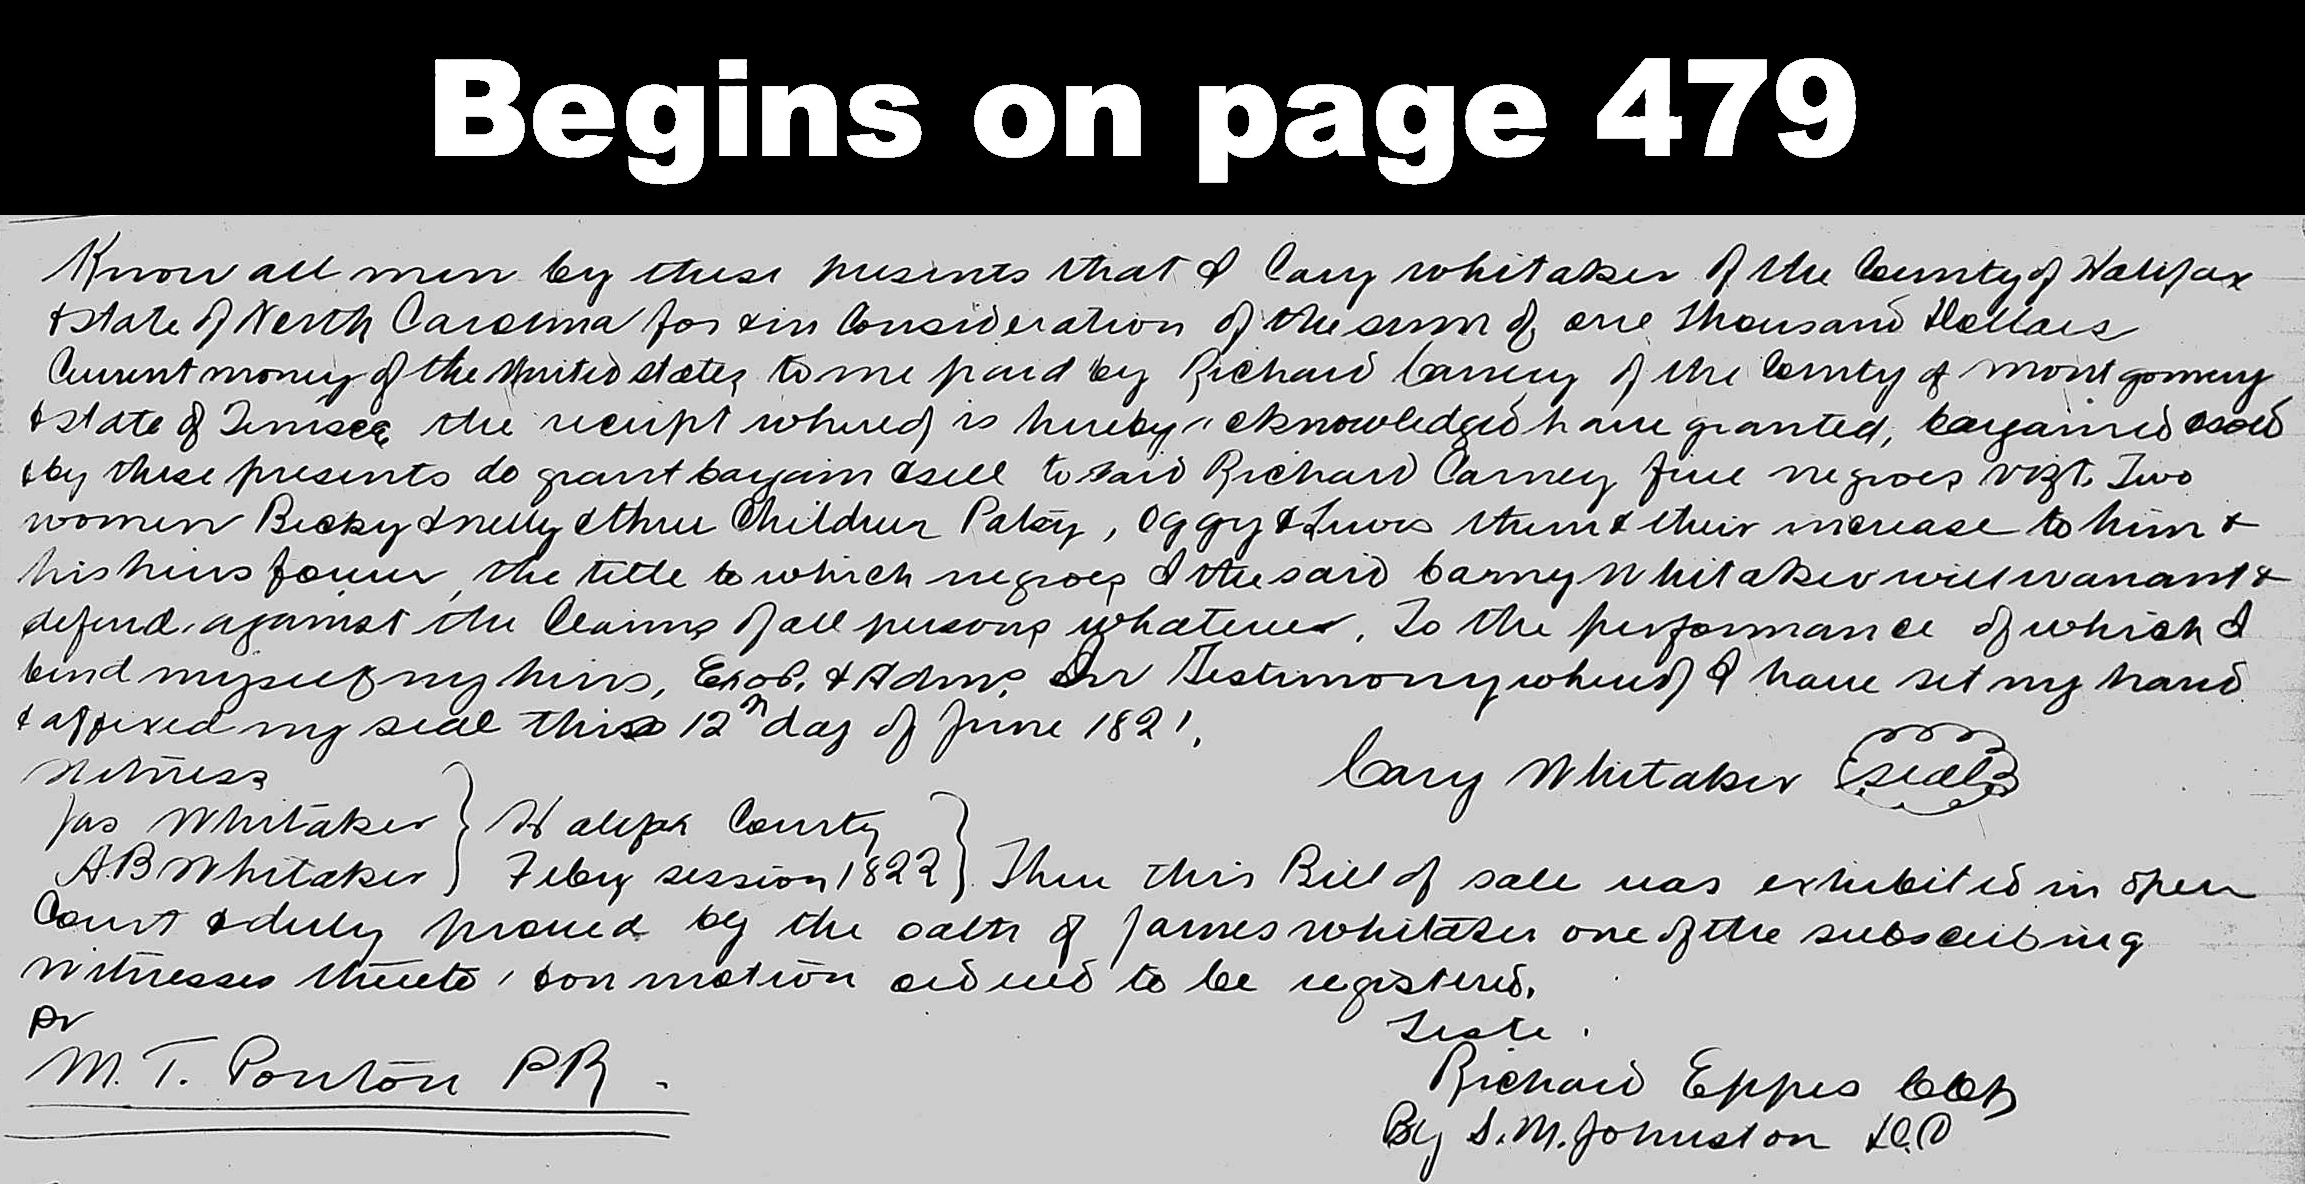 Begins on page 479
Know all men by these presents that I Cary Whitaker of the County of Halifax
& State of North Carolina for & in Consideration of the sum of one thousand Dollars
Current money of the United States to me paid by Richard Carney of the County of Montgomery
& State of Tenisee the receipt whereof is hereby acknowledged have granted, bargained & sold
& by these presents do grant bargain & sell to said Richard Carney five negroes vizt. Two
women Becky & Nelly & three Children Patsy, Oggy & Lewis them & their increase to him &
his heirs forever, the title to which negroes I the said Carny Whitaker will warrant &
defend against the Claims of all persons whatever. To the performance of which I
bind myself my heirs, Exors. & Adms. In Testimony whereof I have set my hand
& affixed my seal this 12th day of June 1821.
Witness
Cary Whitaker (seal)
Jas Whitaker } Halifx County }
A.B Whitaker } Feby session 1822 } Then this Bill of sale was exhibited in open
Court & duly proved by the oath of James Whitaker one of the subscribing
witnesses thereto, & on motion ordered to be registered.
pr
Teste.
M. T. Ponton PR.
Richard Eppes Clk
By S. M. Johnston D.C